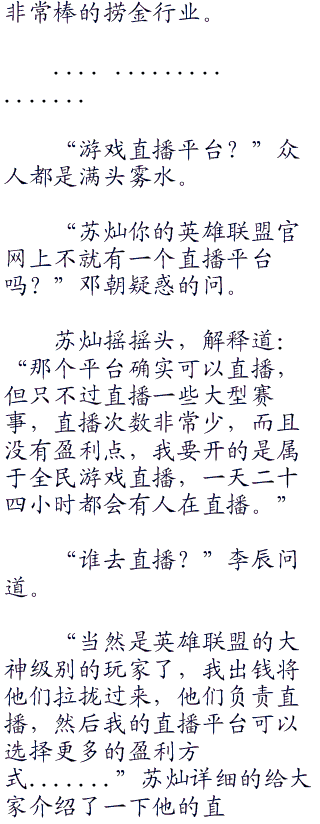 非常棒的捞金行业。
.... .........
.......
“游戏直播平台？”众
人都是满头雾水。
“苏灿你的英雄联盟官
网上不就有一个直播平台
吗？”邓朝疑惑的问。
苏灿摇摇头，解释道：
“那个平台确实可以直播，
但只不过直播一些大型赛
事，直播次数非常少，而且
没有盈利点，我要开的是属
于全民游戏直播，一天二十
四小时都会有人在直播。”
“谁去直播？”李辰问
道。
“当然是英雄联盟的大
神级别的玩家了，我出钱将
他们拉拢过来，他们负责直
播，然后我的直播平台可以
选择更多的盈利方
式.......”苏灿详细的给大
家介绍了一下他的直